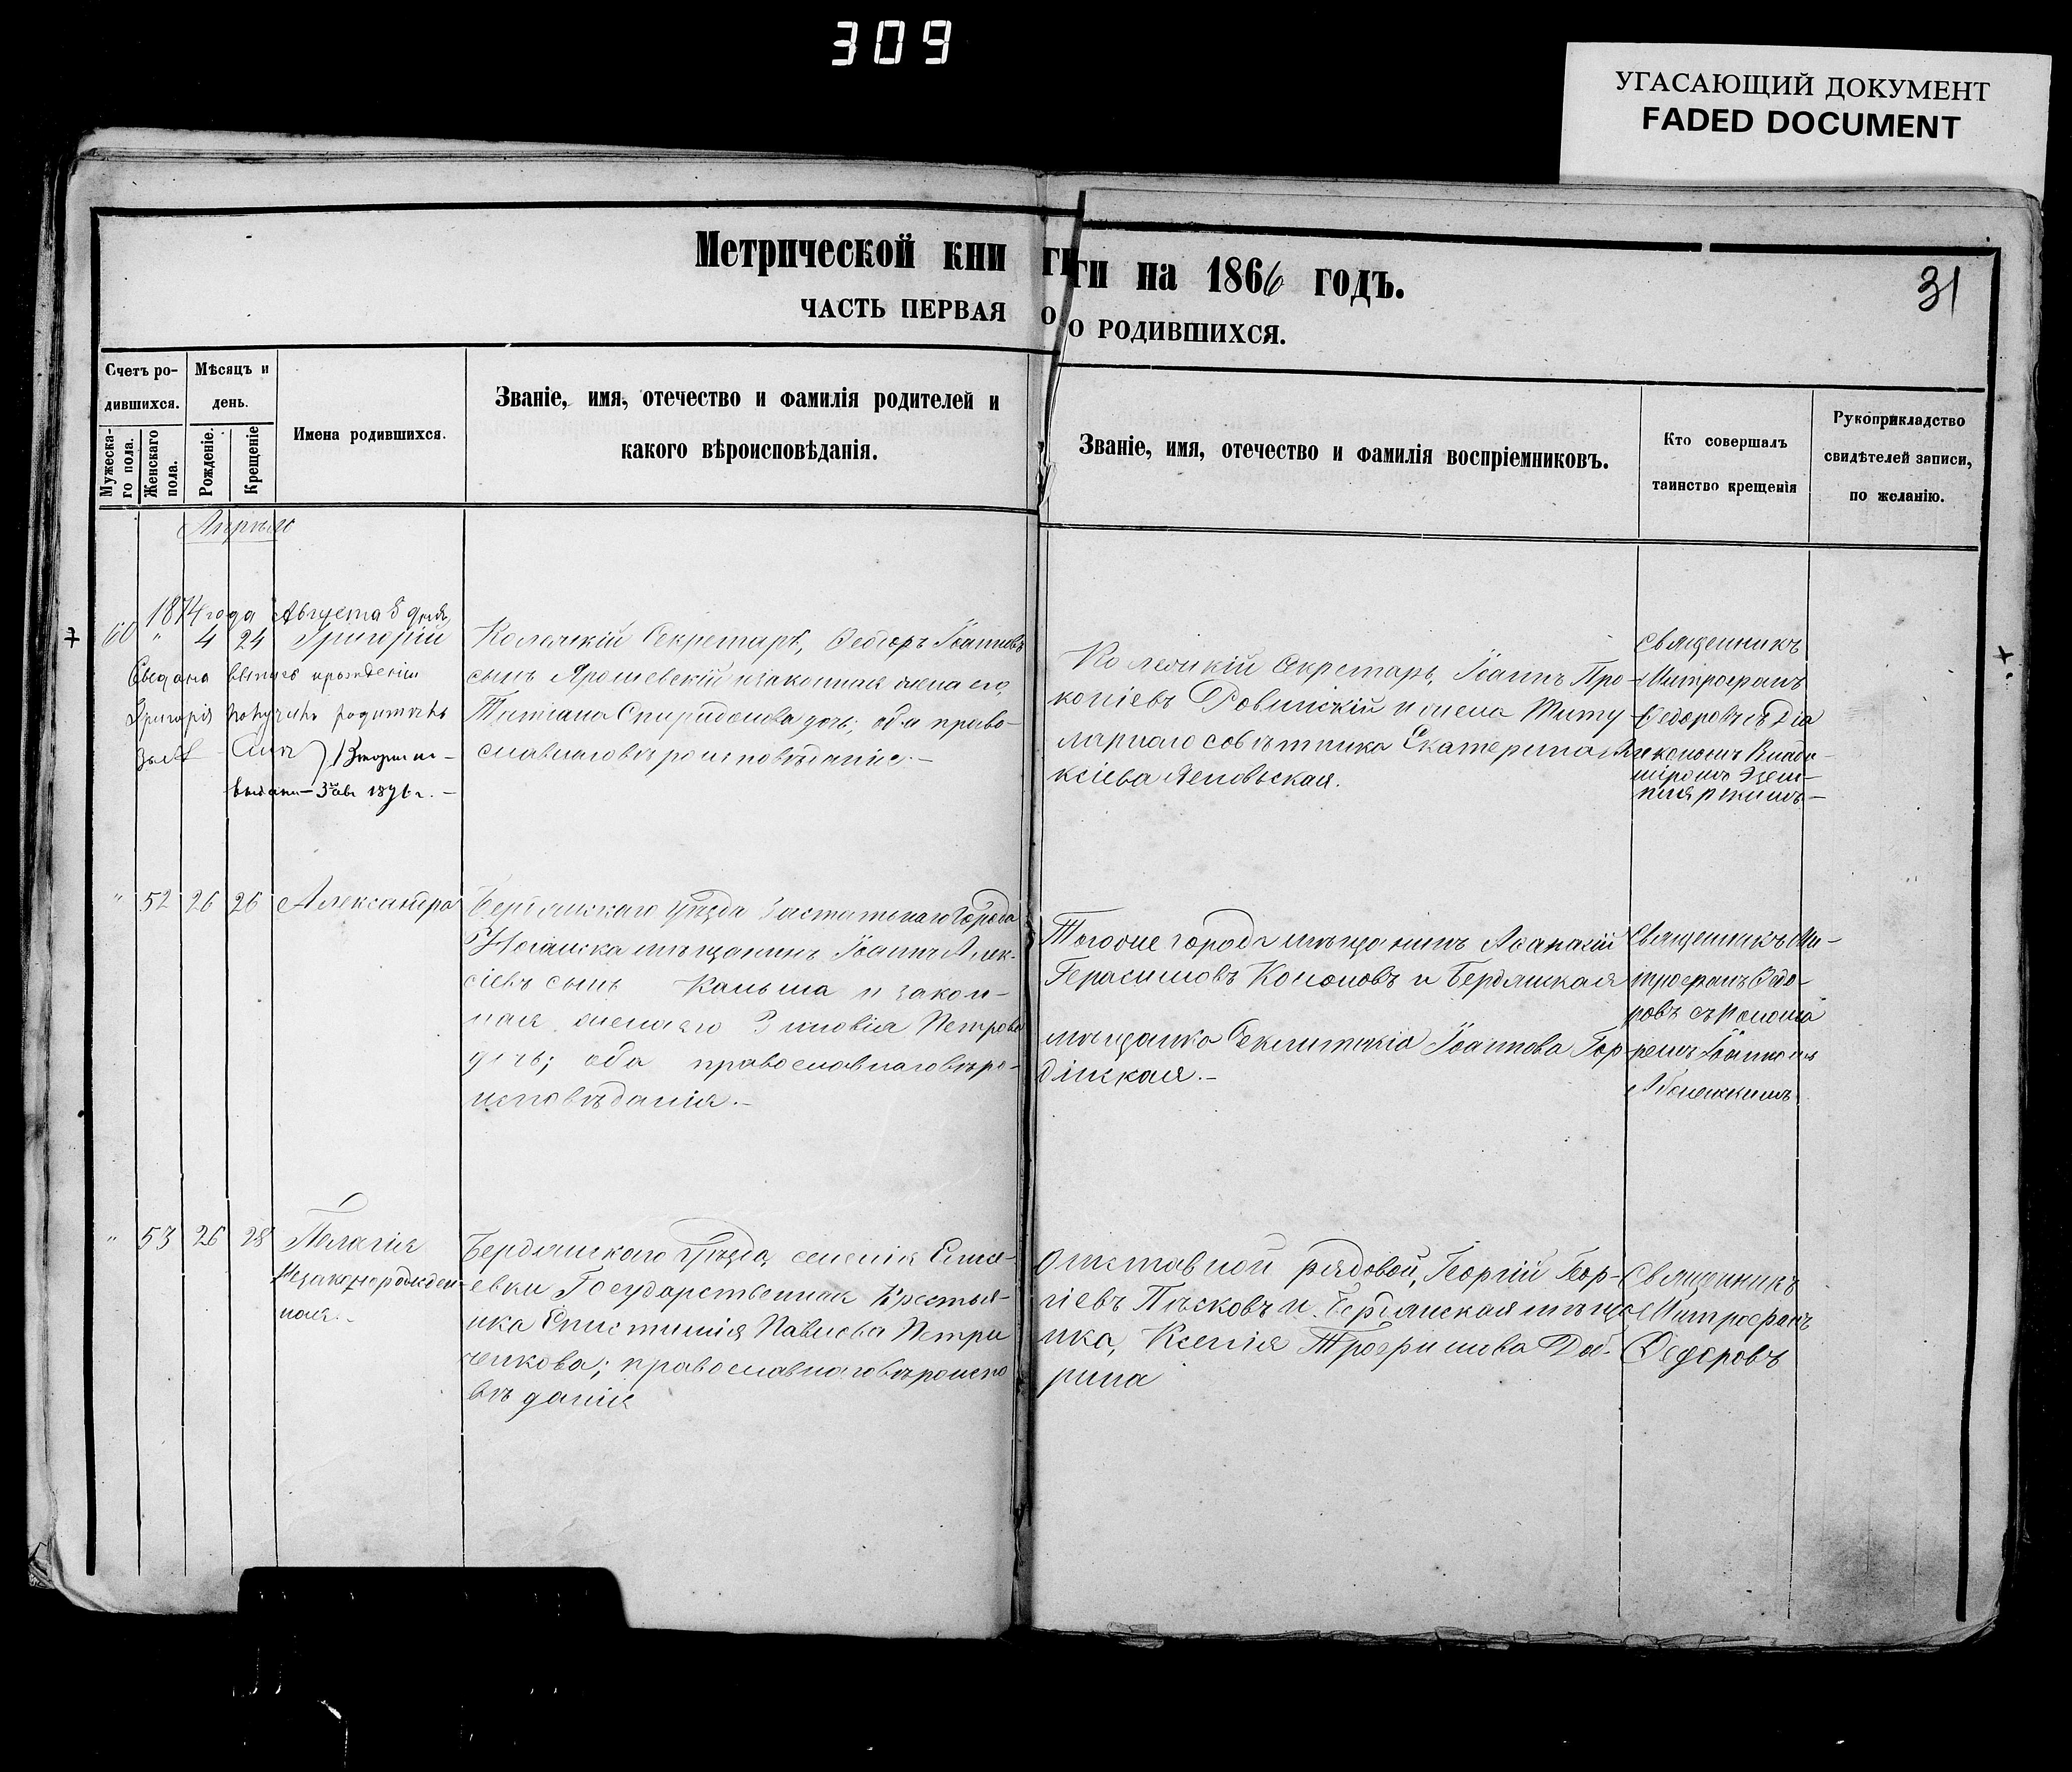 309
УГАСАЮЩИЙ ДОКУМЕНТ
FADED DOCUMENT
Метрической книги на 1866 годъ.
31
ЧАСТЬ ПЕРВАЯ О РОДИВШИХСЯ.
Счетъ ро-
дившихся.
Мужеска-
го пола.
Женскаго
пола.
Мѣсяцъ и
день.
Рожденіе.
Крещеніе
Имена родившихся.
Званіе, имя, отечество и фамилія родителей и
какого вѣроисповѣданія.
Званіе, имя, отечество и фамилія воспріемниковъ.
Кто совершалъ
таинство крещенія
Рукоприкладство
свидѣтелей записи,
по желанію.
Апрѣль
1874 года Августа 8 дня
60 " 4 24 Григорій
Григорія
выдано 1876 г.
Колежскій Секретарь, Ѳеодоръ Іоанновъ
сынъ Ярошевскій и законная жена его,
Татіана Спиридонова дочь; оба право-
славнаго вѣроисповѣданія.-
Колежскій Секретарь, Іоаннъ Про-
копіевъ Ровинскій и жена Титу
лярнаго совѣтника Екатерина Але
ксіева
Священникъ
Митрофанъ
Ѳедоровъ съ Діа
кономъ Влади-
міромъ
" 52 26 26 Александра
Бердянскаго уѣзда Заштатнаго Города
Ногайска мѣщанинъ Іоаннъ Алек-
сіевъ сынъ и закон-
ная жена его Зиновія Петрова
дочь; оба православнаго вѣро-
исповѣданія.-
Тогоже города мѣщанинъ Аѳанасій
Герасимовъ Кононовъ и Бердянская
мѣщанка Іоаннова Гор-
дѣнская.-
Священникъ Ми-
трофанъ Ѳедо-
ровъ съ Понома
ремъ Іоанномъ
" 53 26 28 Пелагія
Незаконорожден-
ная.-
Бердянскаго уѣзда, селенія Елисе-
евки Государственная Крестья-
нка Епистимія Павлова Петри
ченкова; православнаго вѣроиспо
вѣданія
Отставной рядовой, Георгій Геор-
гіевъ Пѣсковъ и Бердянская мѣща
нка, Ксенія Трофимова
рина
Священникъ
Митрофанъ
Ѳедоровъ